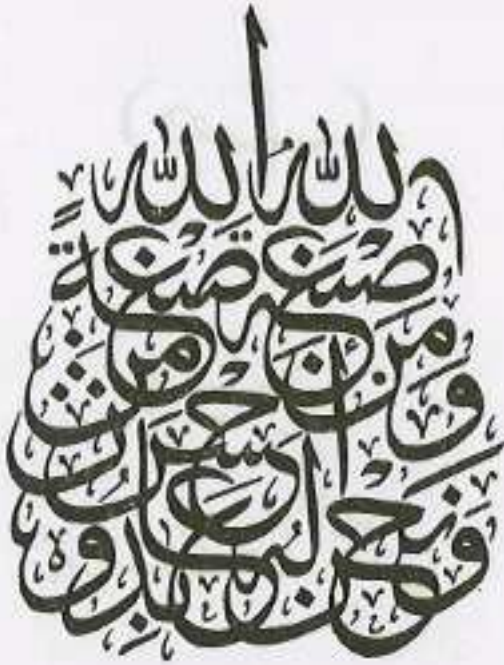 صِبْغَةَ اللّٰهِ وَمَنْ أَحْسَنُ مِنَ اللّٰهِ صِبْغَةً وَنَحْنُ لَهُ عَابِدُونَ